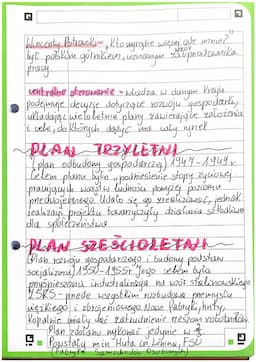 Wincenty Pstrowski - „Kto wyrąbie więcej ode mnie?”
był polskim górnikiem, uznanym za wzór przodownika
pracy.
centralne sterowanie - władza w danym kraju
podejmuje decyzje dotyczące rozwoju gospodarki,
układając wieloletnie plany zawierające założenia
i cele, do których dążyć ma cały rynek
PLAN TRZYLETNI
(plan odbudowy gospodarczej) 1947-1949r.
Celem planu było „podniesienie stopy życiowej
pracujących warstw ludności powyżej poziomu
przedwojennego. Udało się go zrealizować, jednak
realizacji projektu towarzyszyły działania szkodliwe
dla społeczeństwa
PLAN SZEŚCIOLETNI
(Plan rozwoju gospodarczego i budowy podstaw
socjalizmu) 1950-1955r. Jego celem była
przyśpieszona industralizacja na wzór stalinowskiego
ZSRS - przede wszystkim rozbudowa przemysłu
ciężkiego i zbrojeniowego. Nowe fabryki, huty,
kopalnie miały dać zatrudnienie rzeszom robotników.
Plan zdołano wykonać jedynie w
Powstały m.in. Huta im. Lenina, FSO
(Fabryka Samochodów Osobowych)